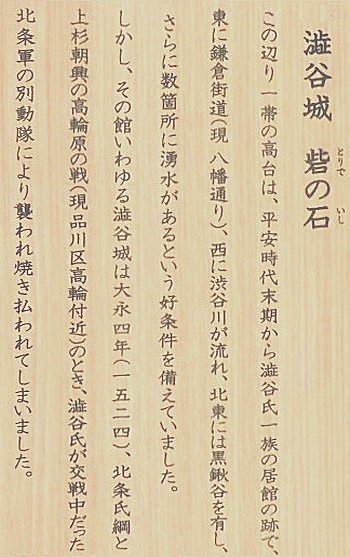 澁谷城 砦の石
とりで いし
この辺り一帯の高台は、平安時代末期から澁谷氏一族の居館の跡で、
東に鎌倉街道(現 八幡通り)、西に渋谷川が流れ、北東には黒鍬谷を有し、
さらに数箇所に湧水があるという好条件を備えていました。
しかし、その館いわゆる澁谷城は大永四年(一五二四)、北条氏綱と
上杉朝興の高輪原の戦(現品川区高輪付近)のとき、澁谷氏が交戦中だった
北条軍の別動隊により襲われ焼き払われてしまいました。